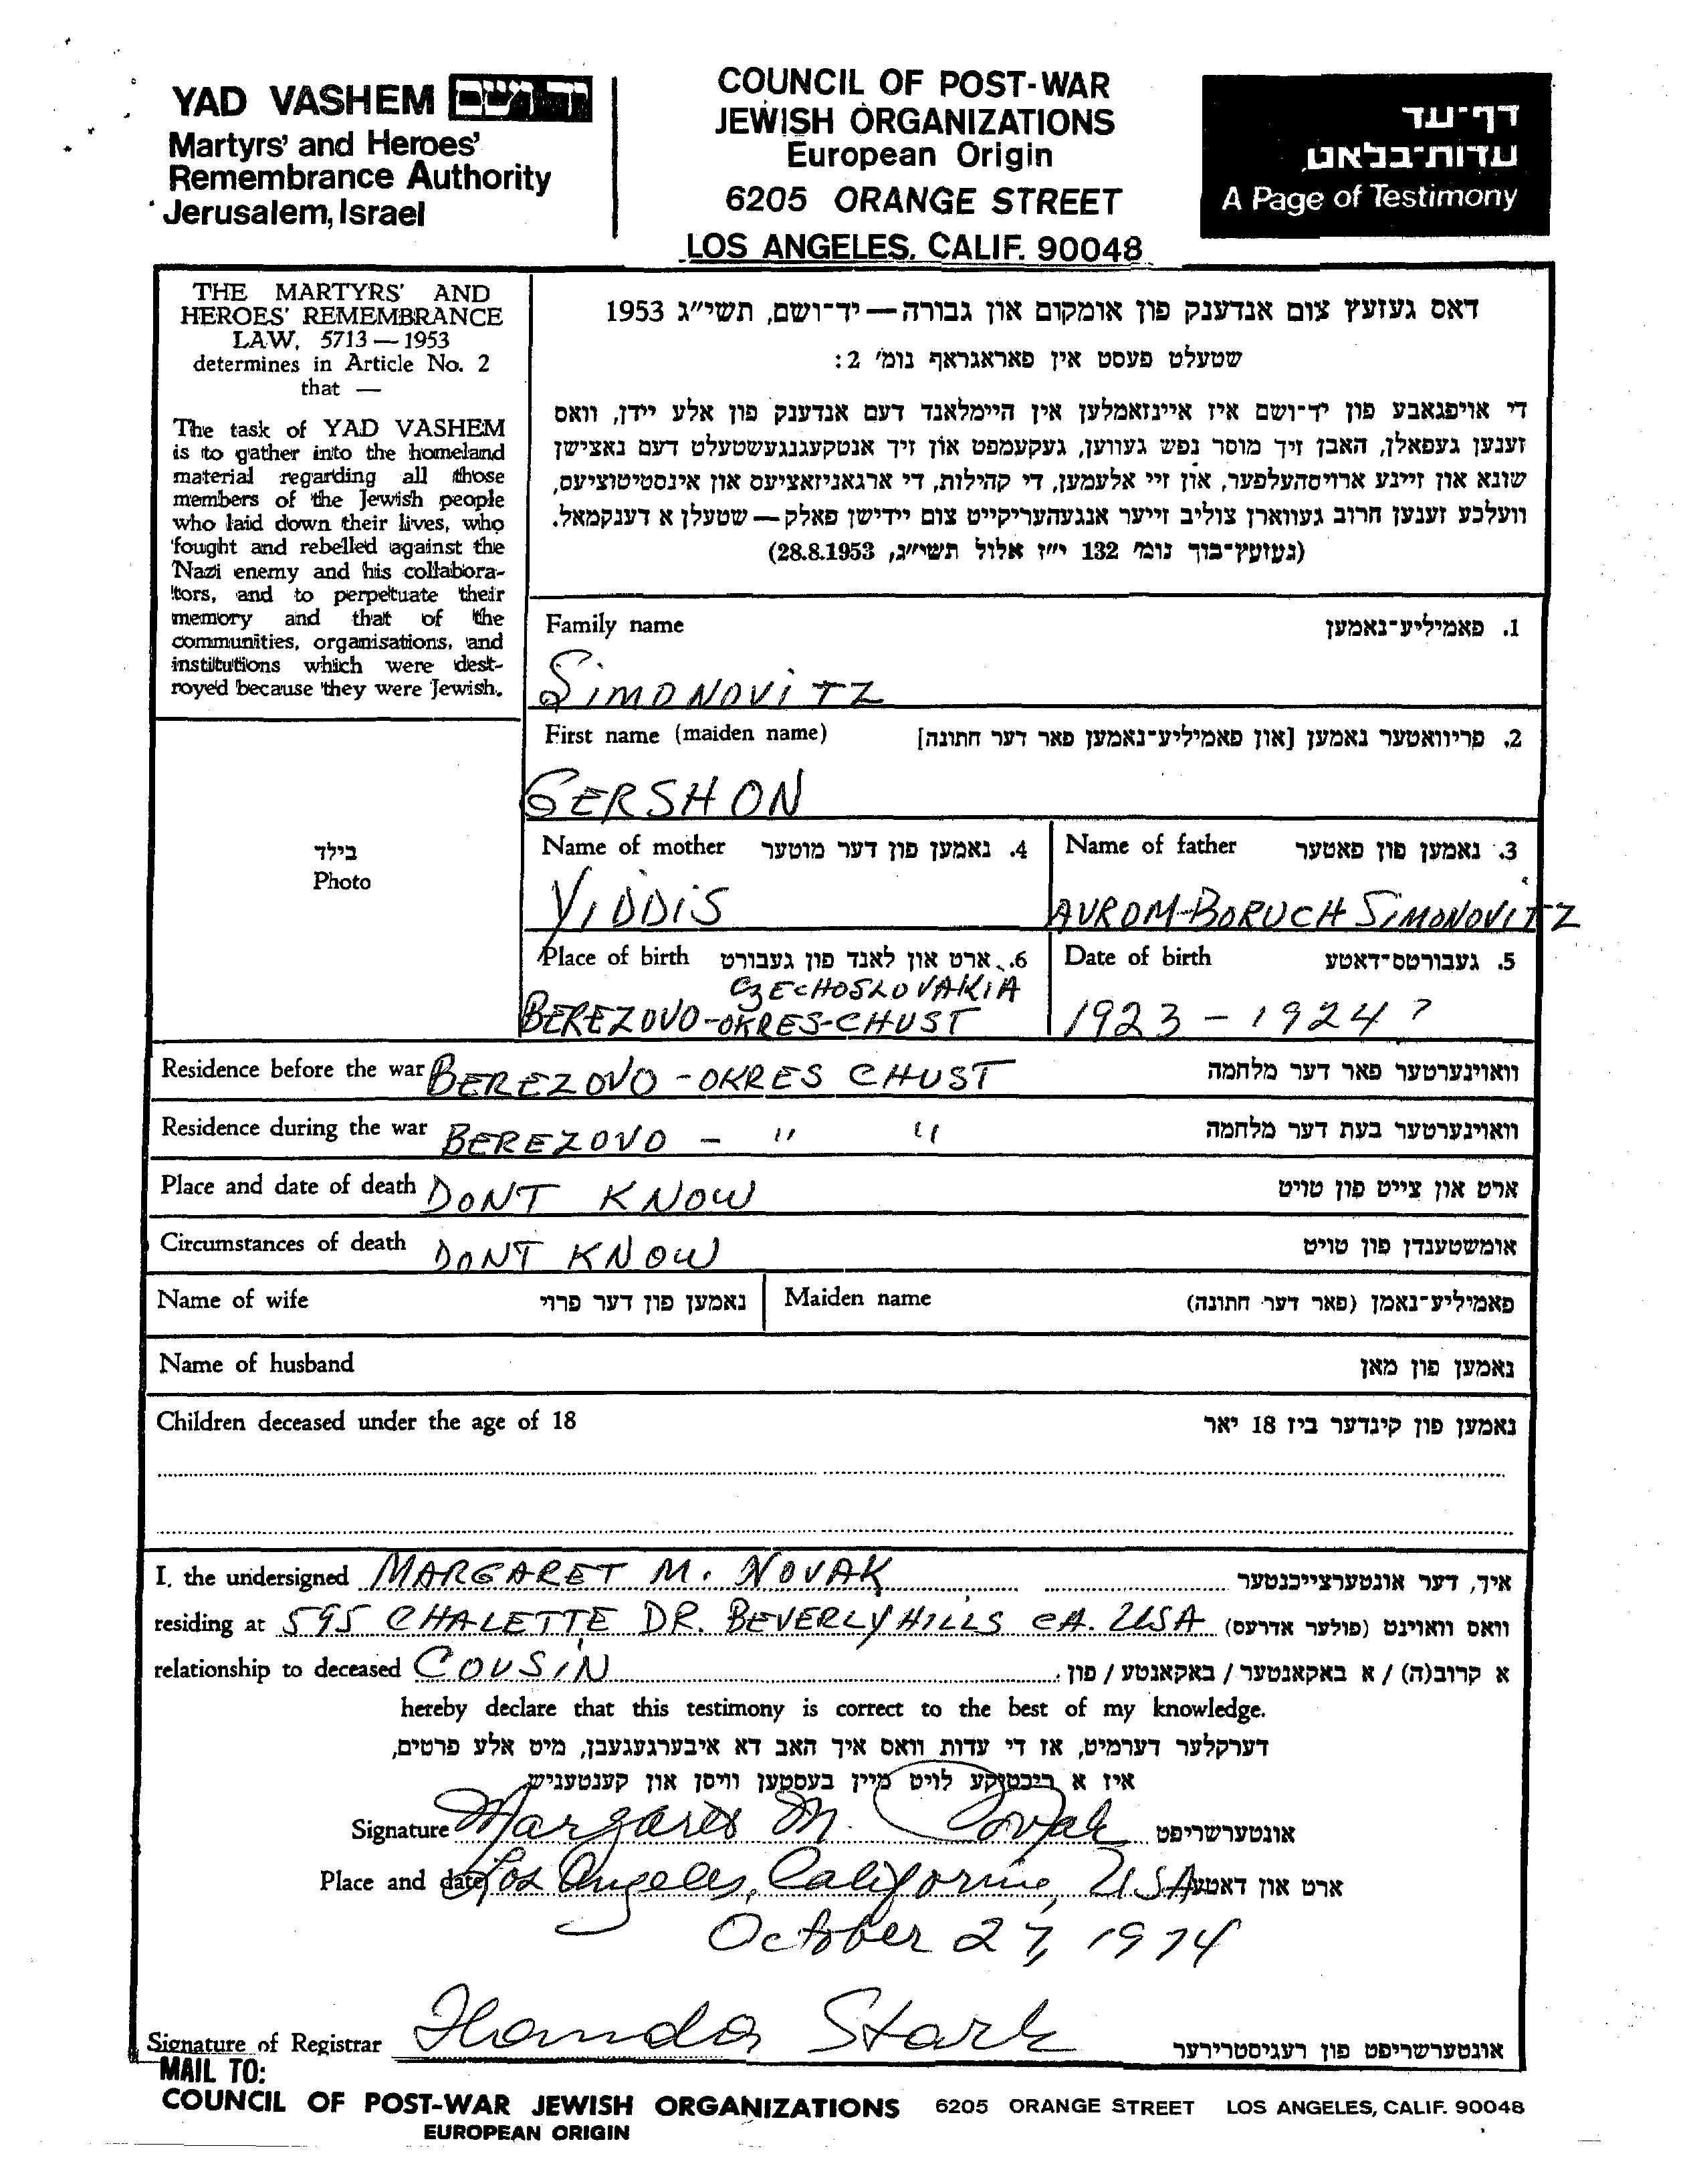 YAD VASHEM יד ושם
Martyrs' and Heroes'
Remembrance Authority
Jerusalem, Israel
COUNCIL OF POST-WAR
JEWISH ORGANIZATIONS
European Origin
6205 ORANGE STREET
LOS ANGELES, CALIF. 90048
דף-עד
עדות-בלאט
A Page of Testimony
THE MARTYRS' AND
HEROES' REMEMBRANCE
LAW, 5713 — 1953
determines in Article No. 2
that —
The task of YAD VASHEM
is to gather into the homeland
material regarding all those
members of the Jewish people
who laid down their lives, who
fought and rebelled against the
Nazi enemy and his collabora-
tors, and to perpetuate their
memory and that of the
communities, organisations, and
institutions which were dest-
royed because they were Jewish.
דאס געזעץ צום אנדענק פון אומקום און גבורה — יד-ושם, תשי״ג 1953
שטעלט פעסט אין פאראגראף נומ׳ 2:
די אויפגאבע פון יד-ושם איז איינזאמלען אין היימלאנד דעם אנדענק פון אלע יידן, וואס
זענען געפאלן, האבן זיך מוסר נפש געווען, געקעמפט און זיך אנטקעגנגעשטעלט דעם נאצישן
שונא און זיינע ארויסהעלפער, און זיי אלעמען, די קהילות, די ארגאניזאציעס און אינסטיטוציעס,
וועלכע זענען חרוב געווארן צוליב זייער אנגעהעריקייט צום יידישן פאלק — שטעלן א דענקמאל.
(געזעץ-בוך נומ׳ 132 י״ז אלול תשי״ג, 28.8.1953)
Family name 1. פאמיליע-נאמען
SIMONOVITZ
First name (maiden name) 2. פריוואטער נאמען [און פאמיליע-נאמען פאר דער חתונה]
GERSHON
בילד
Photo
Name of mother 4. נאמען פון דער מוטער Name of father 3. נאמען פון פאטער
YIDDIS AVROM-BORUCH SIMONOVITZ
Place of birth 6. ארט און לאנד פון געבורט Date of birth 5. געבורטס-דאטע
CZECHOSLOVAKIA
BEREZOVO-OKRES-CHUST 1923 - 1924 ?
Residence before the war BEREZOVO - OKRES CHUST וואוינערטער פאר דער מלחמה
Residence during the war BEREZOVO - " " וואוינערטער בעת דער מלחמה
Place and date of death DONT KNOW ארט און צייט פון טויט
Circumstances of death DONT KNOW אומשטענדן פון טויט
Name of wife נאמען פון דער פרוי Maiden name פאמיליע-נאמן (פאר דער חתונה)
Name of husband נאמען פון מאן
Children deceased under the age of 18 נאמען פון קינדער ביז 18 יאר
I, the undersigned MARGARET M. NOVAK איך, דער אונטערצייכנטער
residing at 595 CHALETTE DR. BEVERLY HILLS CA. USA וואס וואוינט (פולער אדרעס)
relationship to deceased COUSIN א קרוב(ה) / א באקאנטער / באקאנטע / פון
hereby declare that this testimony is correct to the best of my knowledge.
דערקלער דערמיט, אז די עדות וואס איך האב דא איבערגעגעבן, מיט אלע פרטים,
איז א ריכטיקע לויט מיין בעסטען וויסן און קענטעניש
Signature Margaret M. Novak אונטערשריפט
Place and date Los Angeles, California, USA ארט און דאטע
October 27, 1974
Signature of Registrar Stark אונטערשריפט פון רעגיסטרירער
MAIL TO:
COUNCIL OF POST-WAR JEWISH ORGANIZATIONS 6205 ORANGE STREET LOS ANGELES, CALIF. 90048
EUROPEAN ORIGIN